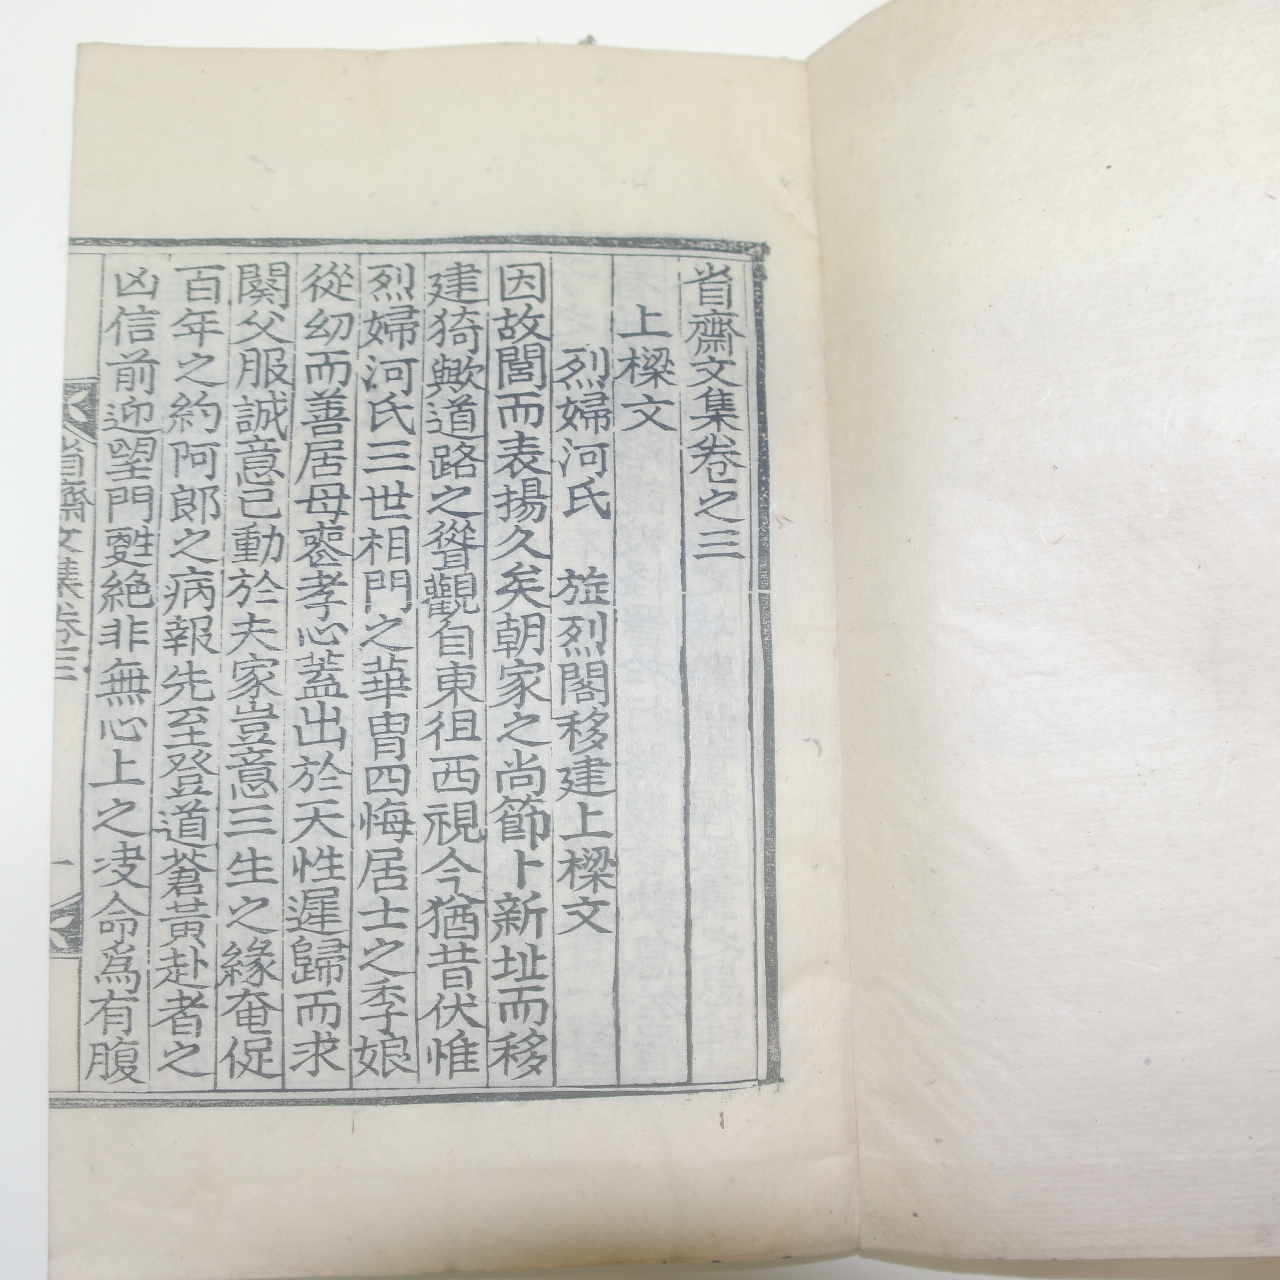 省齋文集卷之三
上樑文
烈婦河氏 旋烈閣移建上樑文
因故閭而表揚久矣朝家之尚節卜新址而移
建猗歟道路之聳觀自東徂西視今猶昔伏惟
烈婦河氏三世相門之華胄四悔居士之季娘
從幼而善居母喪孝心蓋出於天性遲歸而求
闋父服誠意已動於夫家豈意三生之緣奄促
百年之約阿郞之病報先至登道蒼黃赴者之
凶信前迎望門甦絶非無心上之决命爲有腹
省齋文集卷三
一